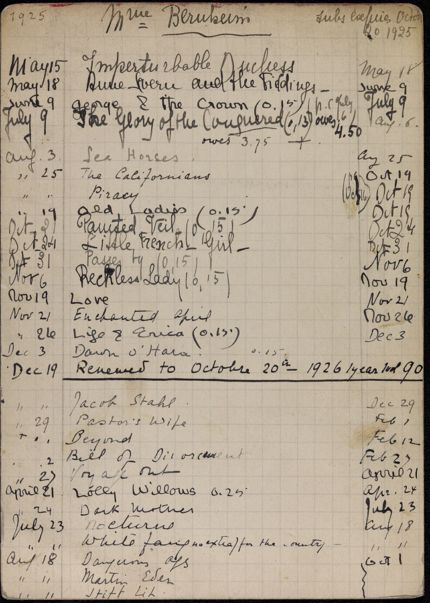 1925 Mme Bernheim Subs expires Octo
20 1925
May 15 Imperturbable Duchess May 18
May 18 Anne Severn and the Fieldings - June 9
June 9 George & the Crown (0.15) July 9
July 9 The Glory of the Conquered (0,15) owes 4.50 Aug. 6.
owes 3.75
Aug. 3. Sea Horses. Aug 25
" 25 The Californians Oct 19
" " Piracy Oct 19
" 19 Old Ladies (0.15) Oct 19
Oct 21 Painted Veil (0,15) Oct 24
Oct 24 Little French Girl - Oct 31
Oct 31 Passes by (0,15) Nov 6
Nov 6 Reckless Lady (0,15) Nov 19
Nov 19 Love Nov 21
Nov 21 Enchanted April Nov 26
" 26 Life & Erica (0.15) Dec 3
Dec 3 Dawn O'Hara. 0.15
Dec 19 Renewed to Octobre 20th 1926 1 year 1 vol 90
" " Jacob Stahl. Dec 29
" 29 Pastor's Wife Feb 1
Beyond Feb 12
2 Bill of Divorcement Feb 23
" 23 Voyage Out April 21
April 21 Lolly Willows 0.25 Apr. 24
" 24 Dark Mother July 23
July 23 Nocturne Aug 18
" " White fang no extra for the country - " "
Aug 18 Dangerous ages Oct 1
" " Martin Eden
" " Stiff Lip